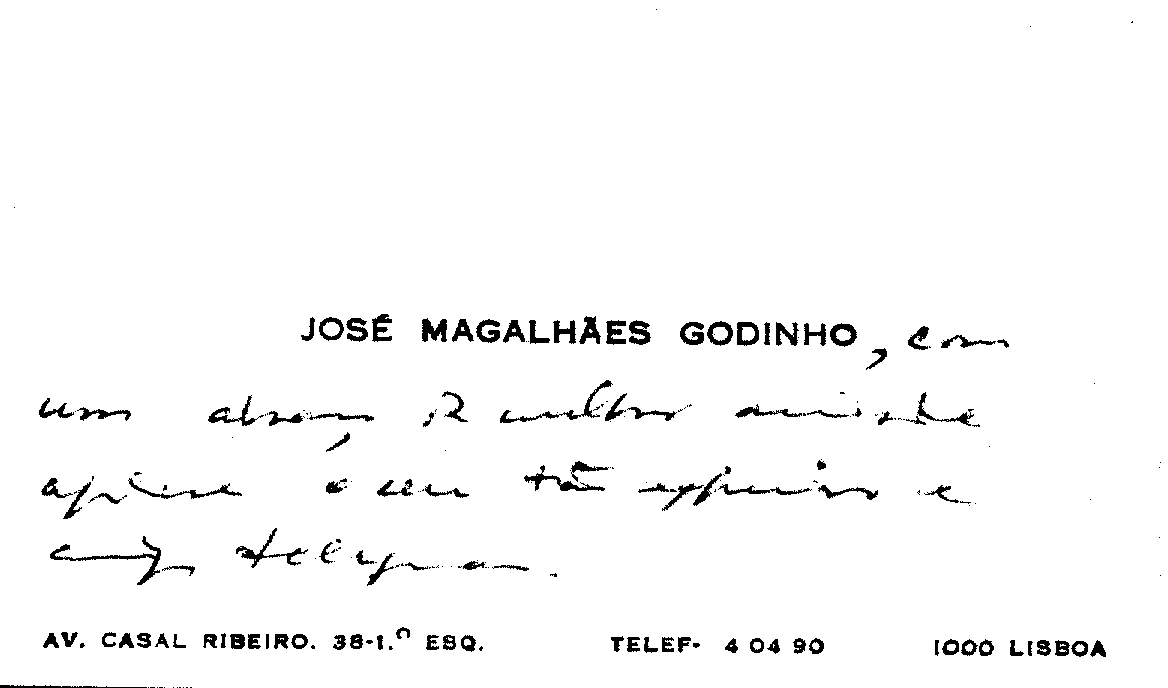 JOSÉ MAGALHÃES GODINHO, com
um abraço de melhor amizade
o seu tão expressivo e
amigo telegrama.
AV. CASAL RIBEIRO. 38-1.º ESQ. TELEF- 4 04 90 1000 LISBOA